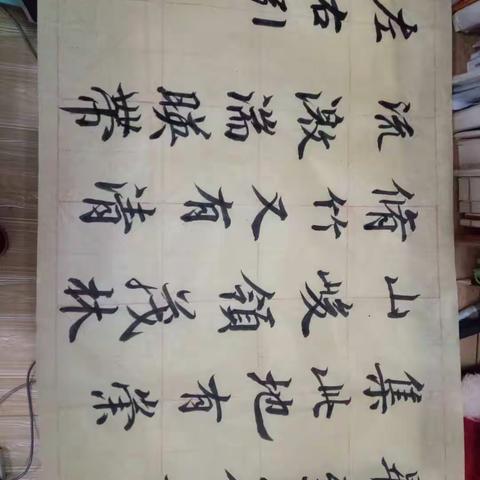 集此地有崇
山峻領茂林
脩竹又有清
流激湍暎帶
左右引